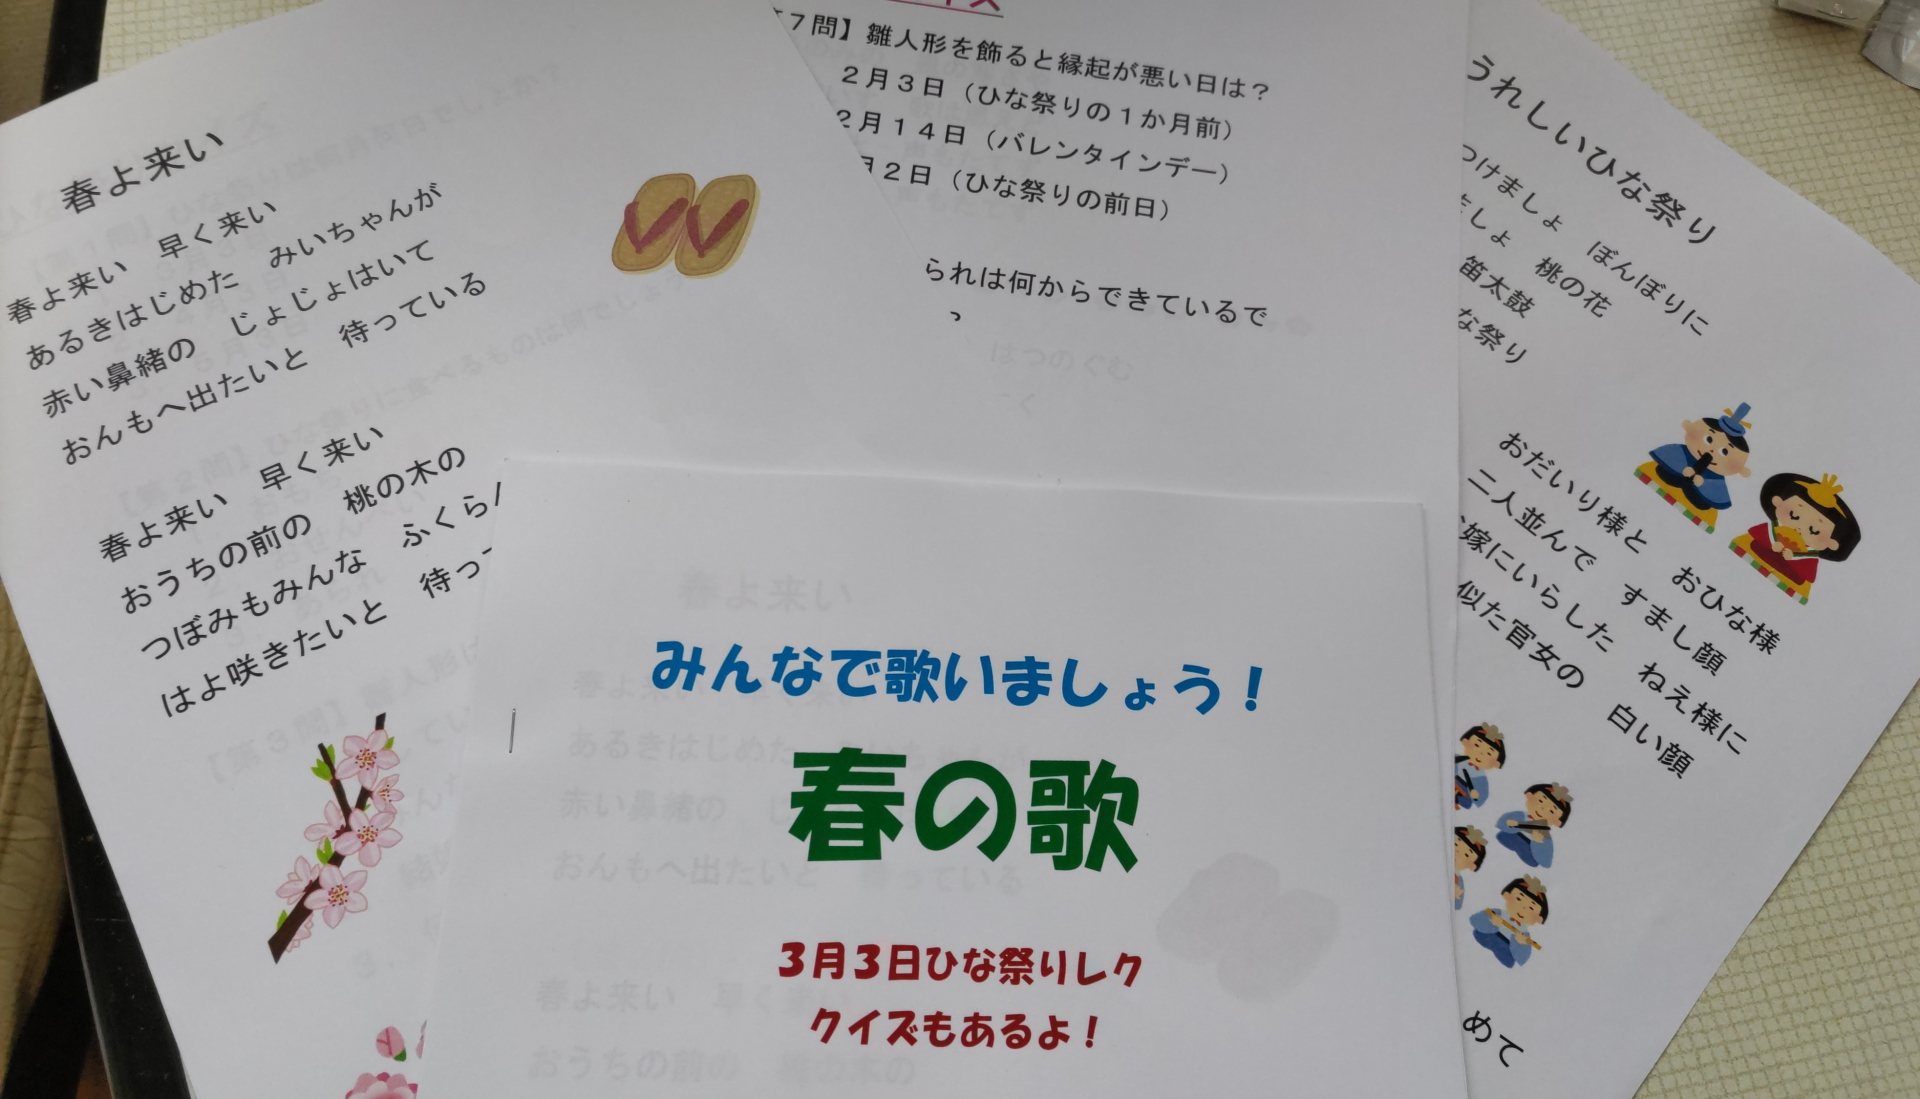 春よ来い
春よ来い　早く来い
あるきはじめた　みいちゃんが
赤い鼻緒の　じょじょはいて
おんもへ出たいと　待っている
春よ来い　早く来い
おうちの前の　桃の木の
つぼみもみんな　ふくら
はよ咲きたいと　待っ
７問】雛人形を飾ると縁起が悪い日は？
２月３日（ひな祭りの１か月前）
２月１４日（バレンタインデー）
月２日（ひな祭りの前日）
られは何からできているで
うれしいひな祭り
つけましょ　ぼんぼりに
ましょ　桃の花
笛太鼓
な祭り
おだいり様と　おひな様
二人並んで　すまし顔
嫁にいらした　ねえ様に
似た官女の　白い顔
めて
みんなで歌いましょう！
春の歌
３月３日ひな祭りレク
クイズもあるよ！